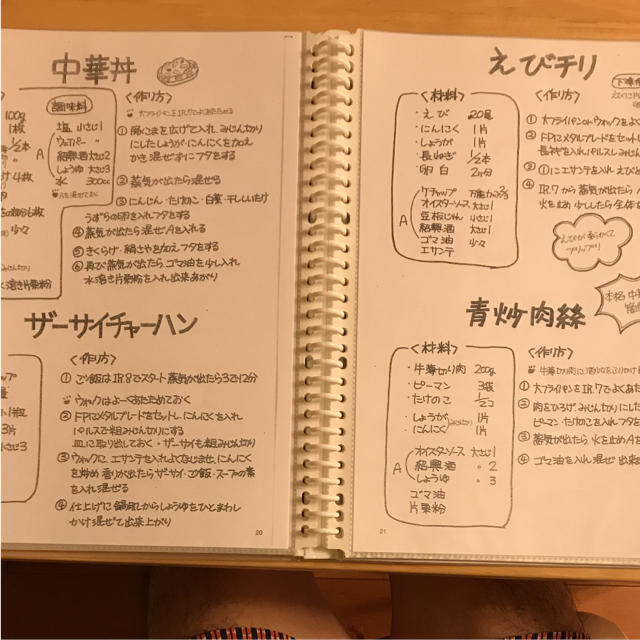 中華丼
100g
1枚
1/2本
4枚
6枚
少々
水溶き片栗粉
調味料
塩 小さじ1
ウェイパー 〃
A 紹興酒 大さじ2
しょうゆ 大さじ3
水 300cc
Aを混ぜておく
〈作り方〉
大フライパンをIR.7でよくあたためる
① 豚こまを広げて入れ みじん切り
にしたしょうが・にんにくを加え
かき混ぜずにフタをする
② 蒸気が出たら混ぜる
③ にんじん・たけのこ・白菜・干ししいたけ
うずらの卵を入れフタをする
④ 蒸気が出たら混ぜAを入れる
⑤ きくらげ・絹さやを加えフタをする
⑥ 再び蒸気が出たら、ゴマ油を少し入れ
水溶き片栗粉を入れ出来あがり
ザーサイチャーハン
3片
〈作り方〉
① ご飯はIR.8でスタート 蒸気が出たら3で12分
ウォックはよーくあたためておく
② FPにメタルブレードをセットし、にんにくを入れ
パルスで粗みじん切りにする
皿に取り出しておく・ザーサイも粗みじん切り
③ ウォックに、エサンテを入れよくなじませ、にんにく
を炒め 香りが出たらザーサイ・ご飯・スープの素
を入れ混ぜる
④ 仕上げに鍋肌からしょうゆをひとまわし
かけ混ぜて出来上がり
20
えびチリ
〈材料〉
・えび 20尾
・にんにく 1片
・しょうが 1片
・長ねぎ 1/2本
・卵白 2ケ分
ケチャップ
オイスターソース 大さじ1
A 豆板じゃん 小さじ1
紹興酒 大さじ1
ゴマ油 少々
エサンテ
〈作り方〉
① 大フライパンorウォックをよく
② FPにメタルブレードをセットし
長ねぎを入れ、パルスしみじん
③ ①にエサンテを入れ えびと
④ IR.7から 蒸気が出たら
火を止め 少ししたら全体を
えびが柔らかくて
プリップリ
本格中華
青炒肉絲
〈材料〉
・牛薄切り肉 200g
・ピーマン 3袋
・たけのこ 1/2コ
・しょうが みじん切り 1片
・にんにく 1片
オイスターソース 大さじ1
A 紹興酒 〃 2
しょうゆ 〃 3
ゴマ油
片栗粉
〈作り方〉
① 大フライパンをIR.7でよくあた
② 肉をひろげ、みじん切りにした
ピーマン・たけのこを入れフタを
③ 蒸気が出たら 火を止めA
④ ゴマ油を入れ混ぜ 出来
21